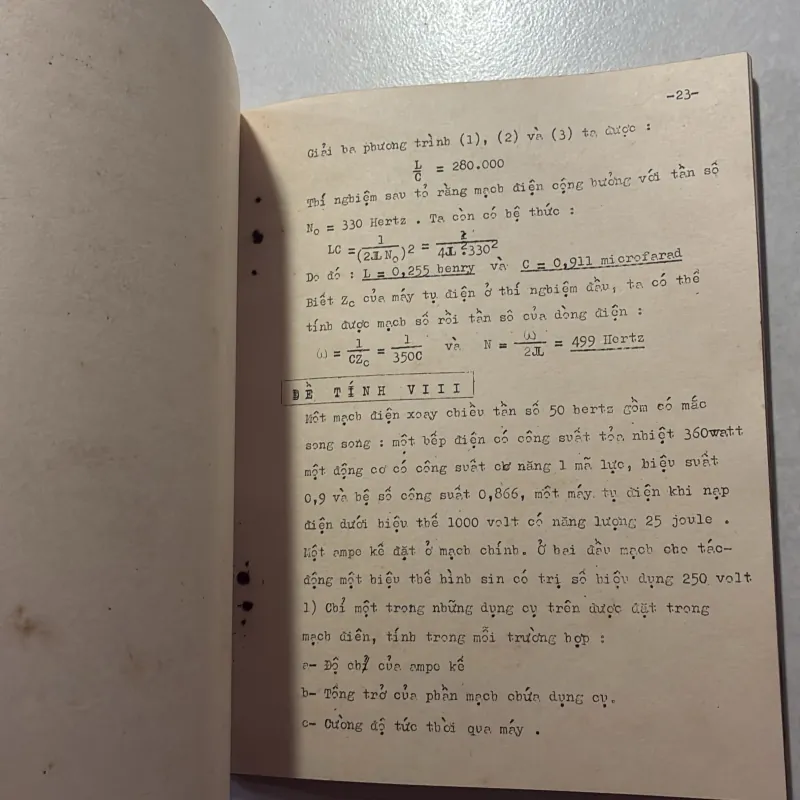 -23-
Giải ba phương trình (1), (2) và (3) ta được :
L/C = 280.000
Thí nghiệm sau tỏ rằng mạch điện cộng hưởng với tần số
N₀ = 330 Hertz . Ta còn có hệ thức :
LC = 1/(2π N₀)2 = 1/4π².330²
Do đó : L = 0,255 henry và C = 0,911 microfarad
Biết Zc của máy tụ điện ở thí nghiệm đầu, ta có thể
tính được mạch số rồi tần số của dòng điện :
ω = 1/CZc = 1/350C và N = ω/2π = 499 Hertz
ĐỀ TÍNH VIII
Một mạch điện xoay chiều tần số 50 hertz gồm có mắc
song song : một bếp điện có công suất tỏa nhiệt 360watt
một động cơ có công suất cơ năng 1 mã lực, hiệu suất
0,9 và hệ số công suất 0,866, một máy tụ điện khi nạp
điện dưới hiệu thế 1000 volt có năng lượng 25 joule .
Một ampe kế đặt ở mạch chính. Ở hai đầu mạch cho tác-
động một hiệu thế hình sin có trị số hiệu dụng 250 volt
1) Chỉ một trong những dụng cụ trên được đặt trong
mạch điên, tính trong mỗi trường hợp :
a- Độ chỉ của ampe kế
b- Tổng trở của phần mạch chứa dụng cụ.
c- Cường độ tức thời qua máy .